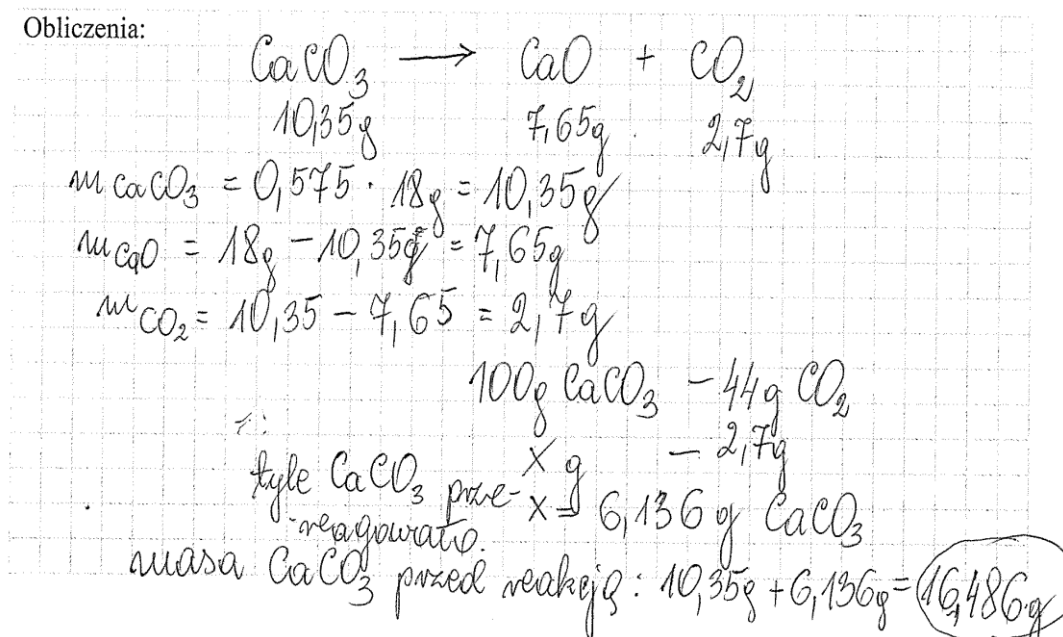 Obliczenia:
CaCO₃ → CaO + CO₂
10,35g 7,65g 2,7g
mCaCO₃ = 0,575 · 18g = 10,35g
mCaO = 18g - 10,35g = 7,65g
mCO₂ = 10,35 - 7,65 = 2,7g
100g CaCO₃ - 44g CO₂
x g - 2,7g
tyle CaCO₃ prze- x = 6,136g CaCO₃
-reagowało.
masa CaCO₃ przed reakcją: 10,35g + 6,136g = 16,486g